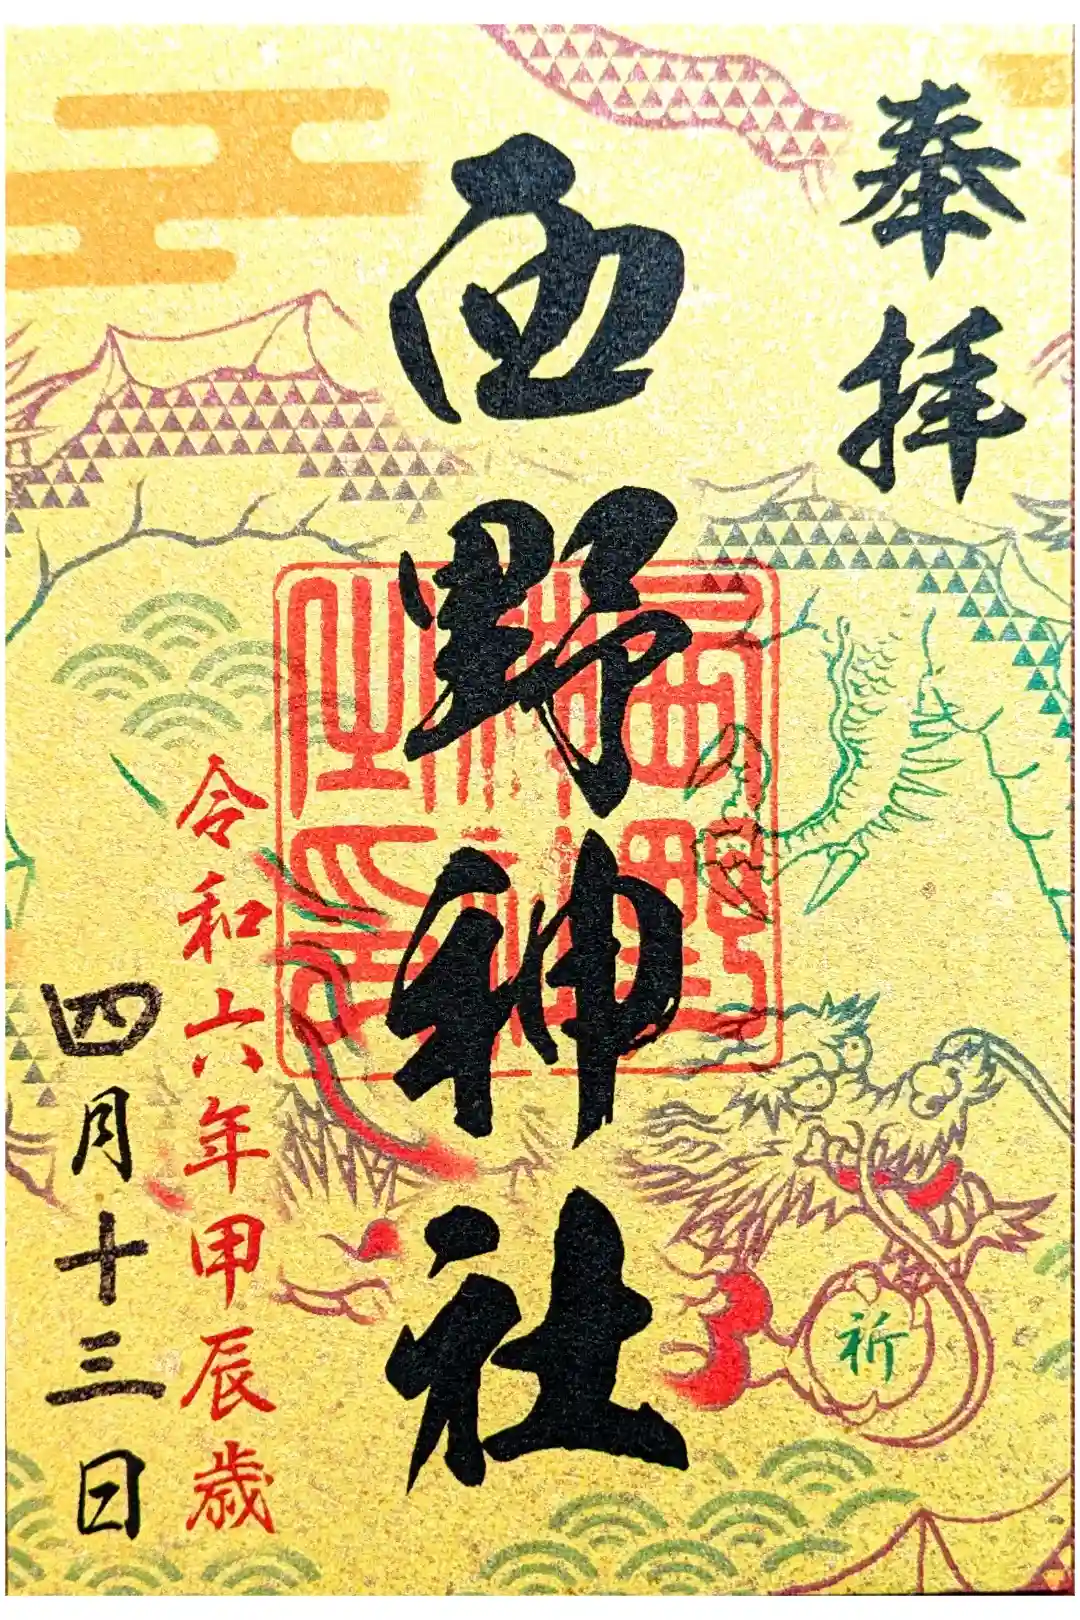 奉拝
西野神社
西野神社之印
令和六年甲辰歳
四月十三日
祈